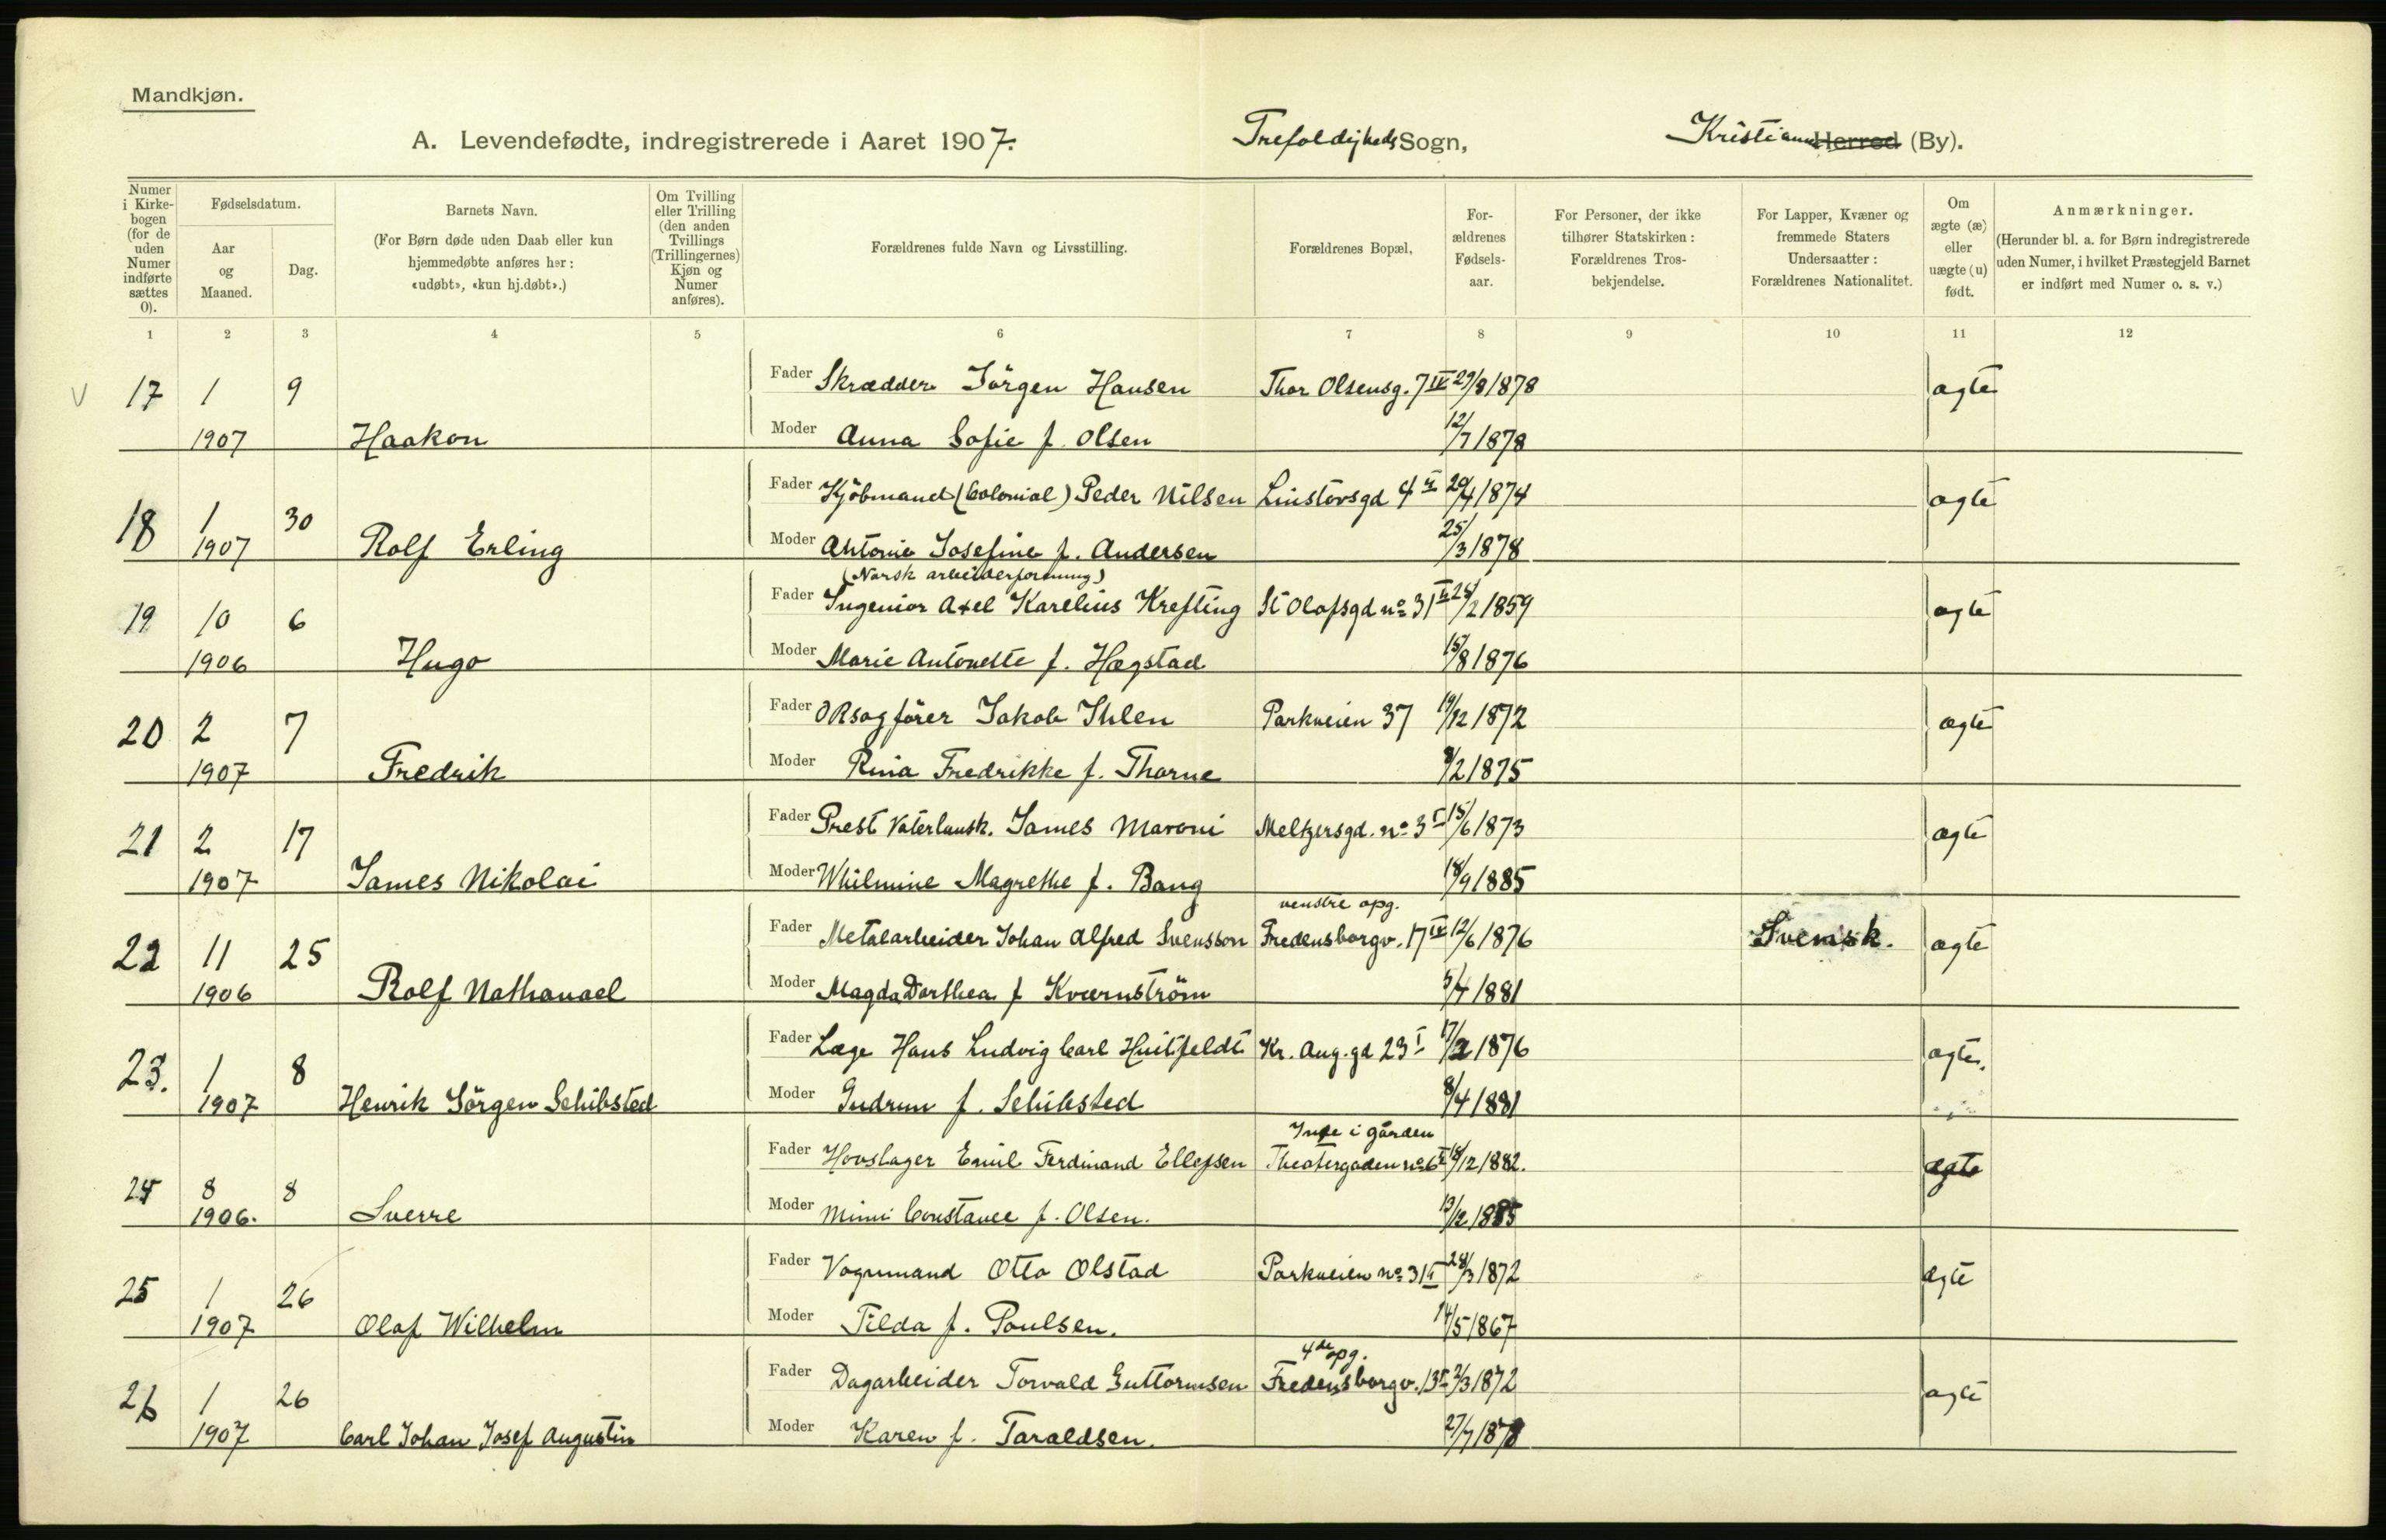 Mandkjøn.
A. Levendefødte, indregistrerede i Aaret 1907. Trefoldigheds Sogn, Kristiania Herred (By).
Numer i Kirkebogen (for de uden Numer indførte sættes 0).
Fødselsdatum.
Aar og Maaned.
Dag.
Barnets Navn.
(For Børn døde uden Daab eller kun hjemmedøbte anføres her: «udøbt», «kun hj.døbt».)
Om Tvilling eller Trilling (den anden Tvillings (Trillingernes) Kjøn og Numer anføres).
Forældrenes fulde Navn og Livsstilling.
Forældrenes Bopæl.
Forældrenes Fødselsaar.
For Personer, der ikke tilhører Statskirken: Forældrenes Trosbekjendelse.
For Lapper, Kvæner og fremmede Staters Undersaatter: Forældrenes Nationalitet.
Om ægte (æ) eller uægte (u) født.
Anmærkninger.
(Herunder bl. a. for Børn indregistrerede uden Numer, i hvilket Præstegjeld Barnet er indført med Numer o. s. v.)
1 2 3 4 5 6 7 8 9 10 11 12
V 17 1 9 Fader Skrædder Jörgen Hansen Thor Olsensg. 7 IV 29/8 1878 ægte
1907 Haakon Moder Anna Sofie f. Olsen 12/7 1878
18 1 30 Fader Kjöbmand (Colonial) Peder Nilsen Linstovsgd 4 II 20/4 1874 ægte
1907 Rolf Erling Moder Antonie Josefine f. Andersen 25/3 1878
(Norsk arbeiderforening)
19 10 6 Fader Ingeniør Axel Karelius Krefting St Olafsgd no 31 II 25/2 1859 ægte
1906 Hugo Moder Marie Antonette f. Hægstad 15/8 1876
20 2 7 Fader ORsagförer Jakob Ihlen Parkveien 37 19/12 1872 ægte
1907 Fredrik Moder Rina Fredrikke f. Thorne 9/2 1875
21 2 17 Fader Prest Vaterlansk. James Maroni Meltzersgd. no 3 I 15/6 1873 ægte
1907 James Nikolai Moder Whilmine Magrethe f. Bang 18/9 1885
venstre opg.
22 11 25 Fader Metalarbeider Johan Alfred Svensson Fredensborgv. 17 IV 12/6 1876 Svensk. ægte
1906 Rolf Nathanael Moder Magda Dorthea f Kvärnström 5/4 1881
23. 1 8 Fader Læge Hans Ludvig Carl Huitfeldt Kr. Aug. gd 23 I 17/2 1876 ægte.
1907 Henrik Jörgen Schibsted Moder Gudrun f. Schibsted 8/4 1881
Inde i gården
24 8 8 Fader Hovslager Emil Ferdinand Ellefsen Theatergaden no 6 18/12 1882. ægte
1906. Sverre Moder Mimi Constance f. Olsen. 13/12 1885
25 1 26 Fader Vognmand Otto Olstad Parkveien no 31 I 28/3 1872 ægte
1907 Olaf Wilhelm Moder Tilda f. Poulsen. 14/5 1867
4de opg.
26 1 26 Fader Dagarbeider Torvald Guttormsen Fredensborgv. 13 I 2/3 1872 ægte
1907 Carl Johan Josef Augustin Moder Karen f. Taraldsen. 27/7 1878